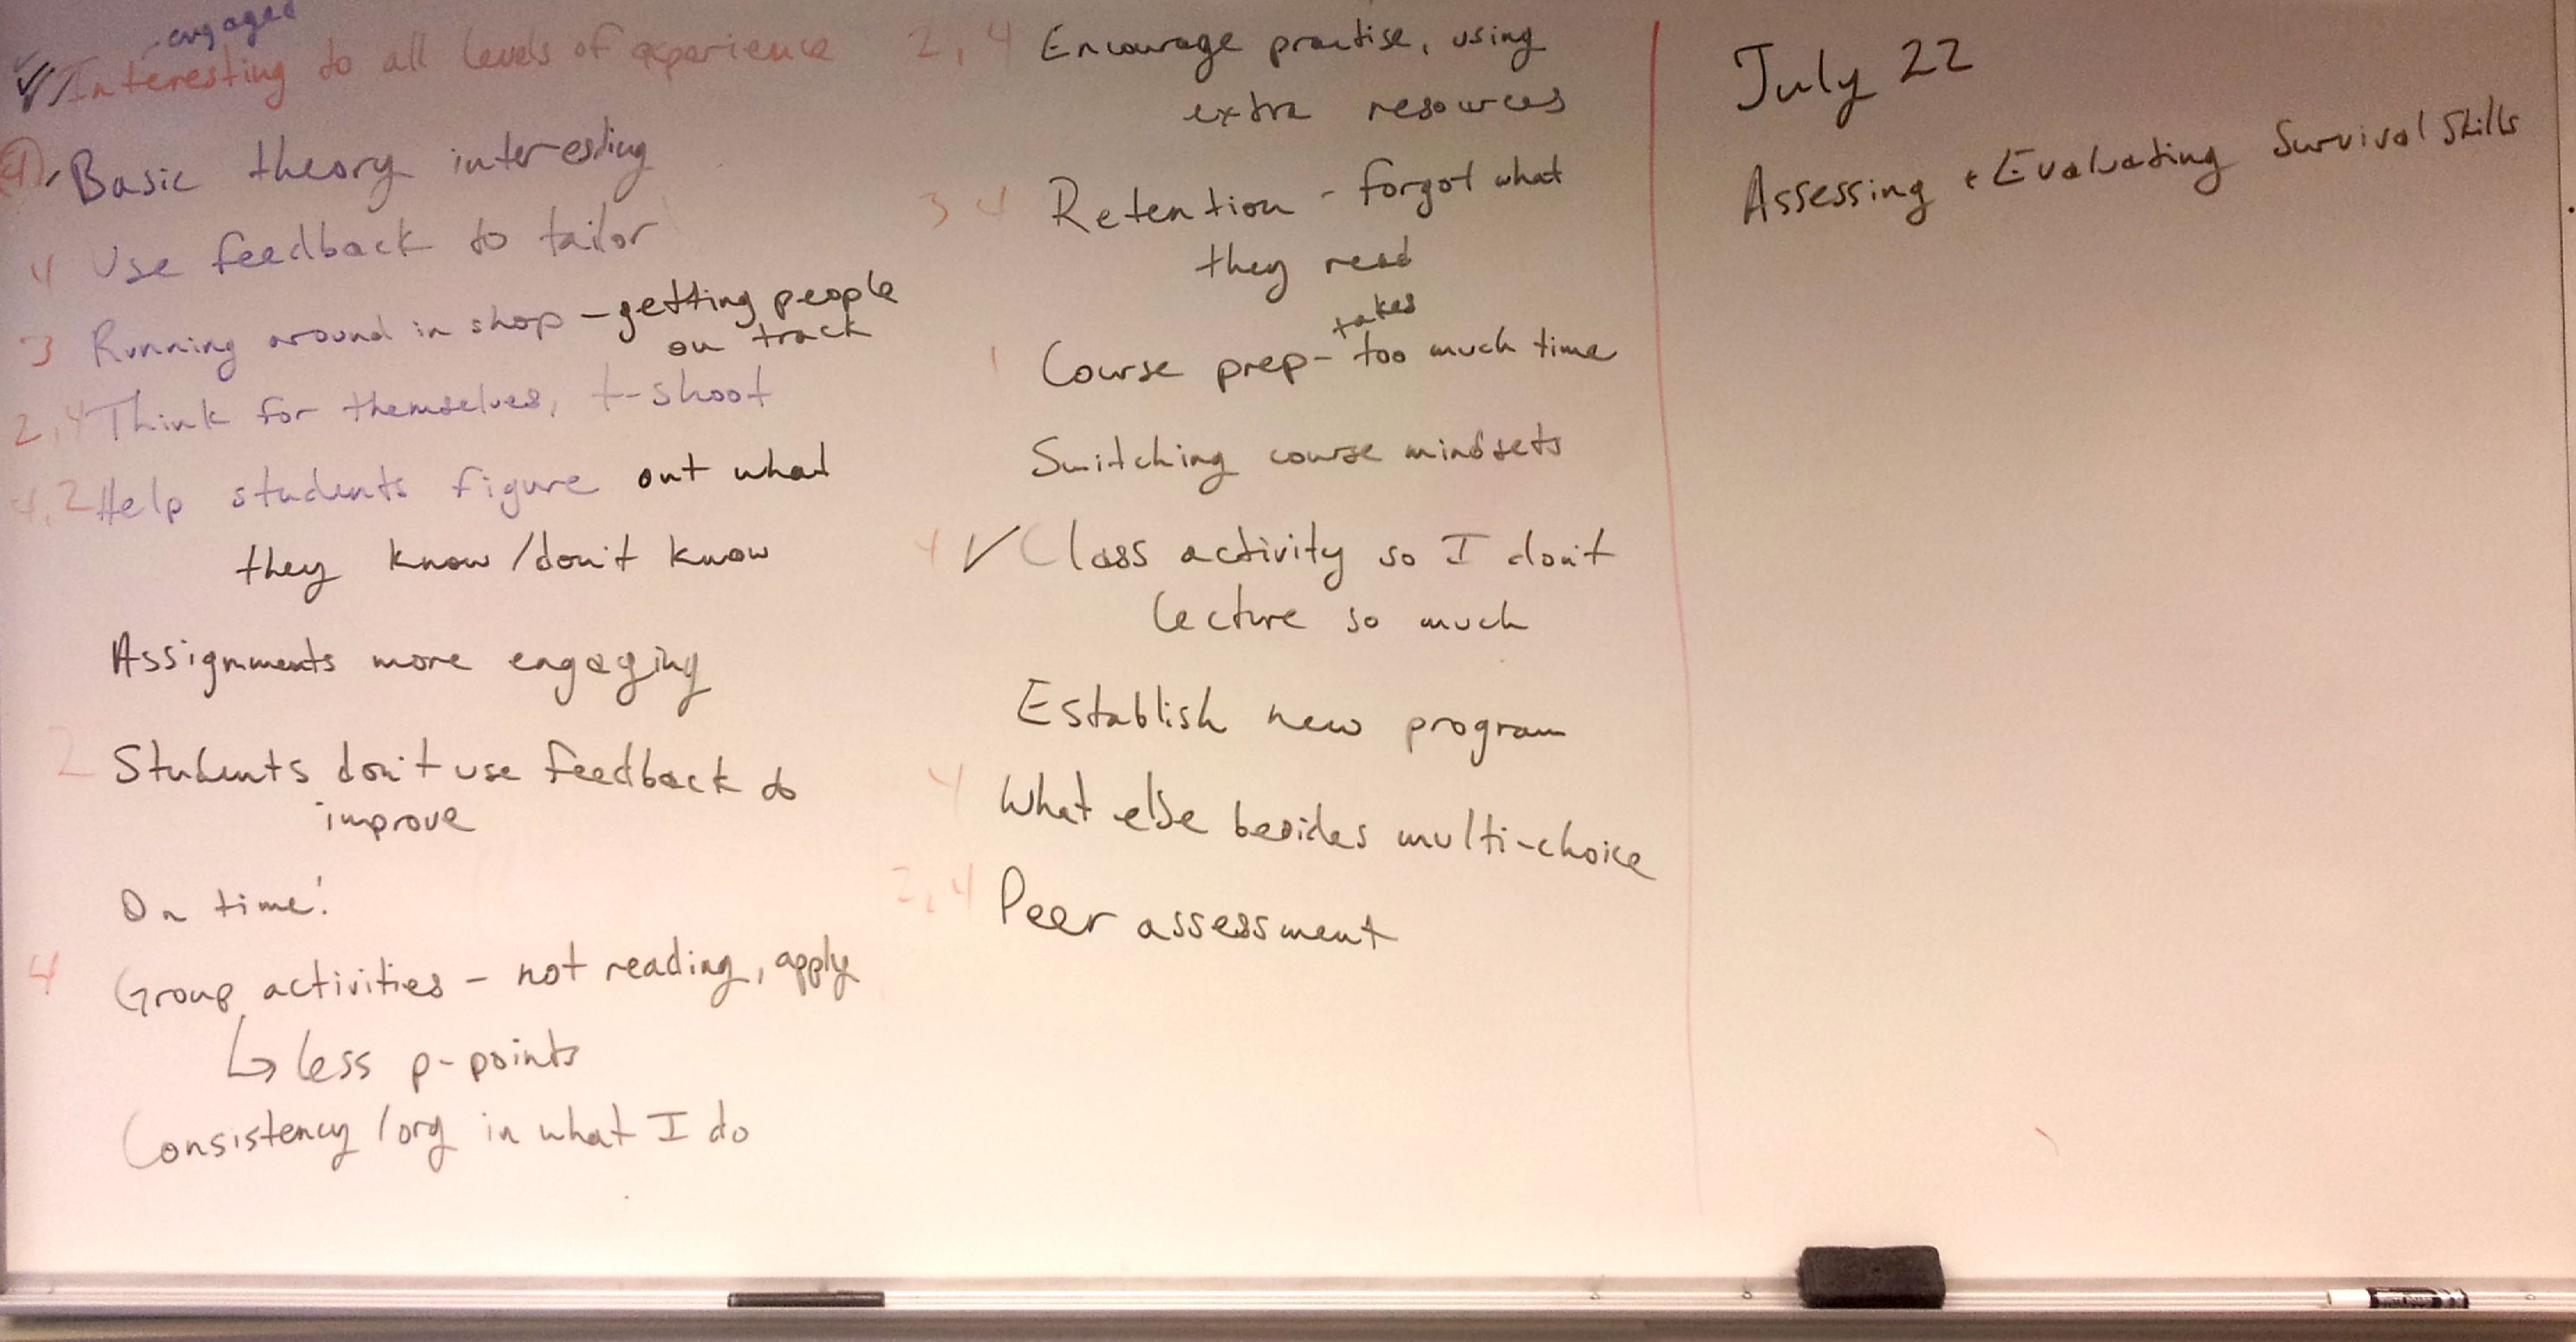 - engaged
Interesting to all levels of experience
4 Basic theory interesting
4 Use feedback to tailor
3 Running around in shop - getting people
on track
2,4 Think for themselves, t-shoot
4,2 Help students figure out what
they know/don't know
Assignments more engaging
2 Students don't use feedback to
improve
On time!
4 Group activities - not reading, apply
↳ less p-points
Consistency/org in what I do
2,4 Encourage practise, using
extra resources
3 4 Retention - forgot what
they read
takes
1 Course prep - too much time
Switching course mindsets
4 ✓ Class activity so I don't
lecture so much
Establish new program
4 What else besides multi-choice
2,4 Peer assessment
July 22
Assessing + Evaluating Survival Skills